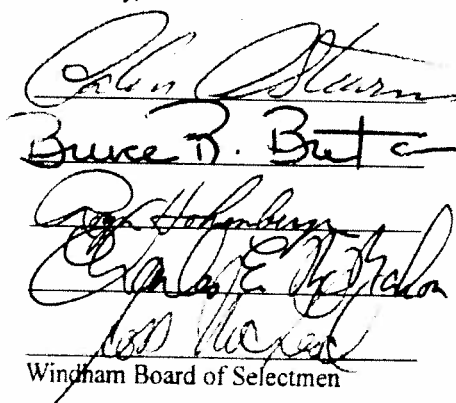 Galen A Stearns
Bruce R. Breton
Roger Hohenberger
Charles E. McMahon
Ross McLeod
Windham Board of Selectmen